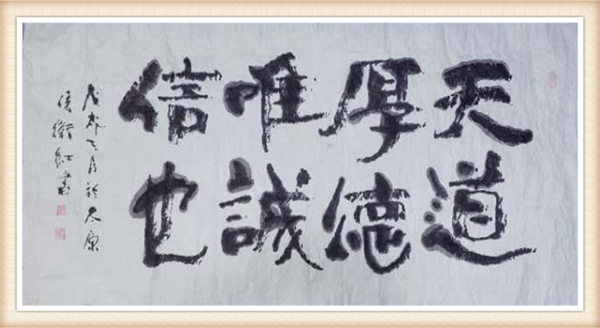 天道
厚德
唯誠
信也
戊戌月於太原
侯書